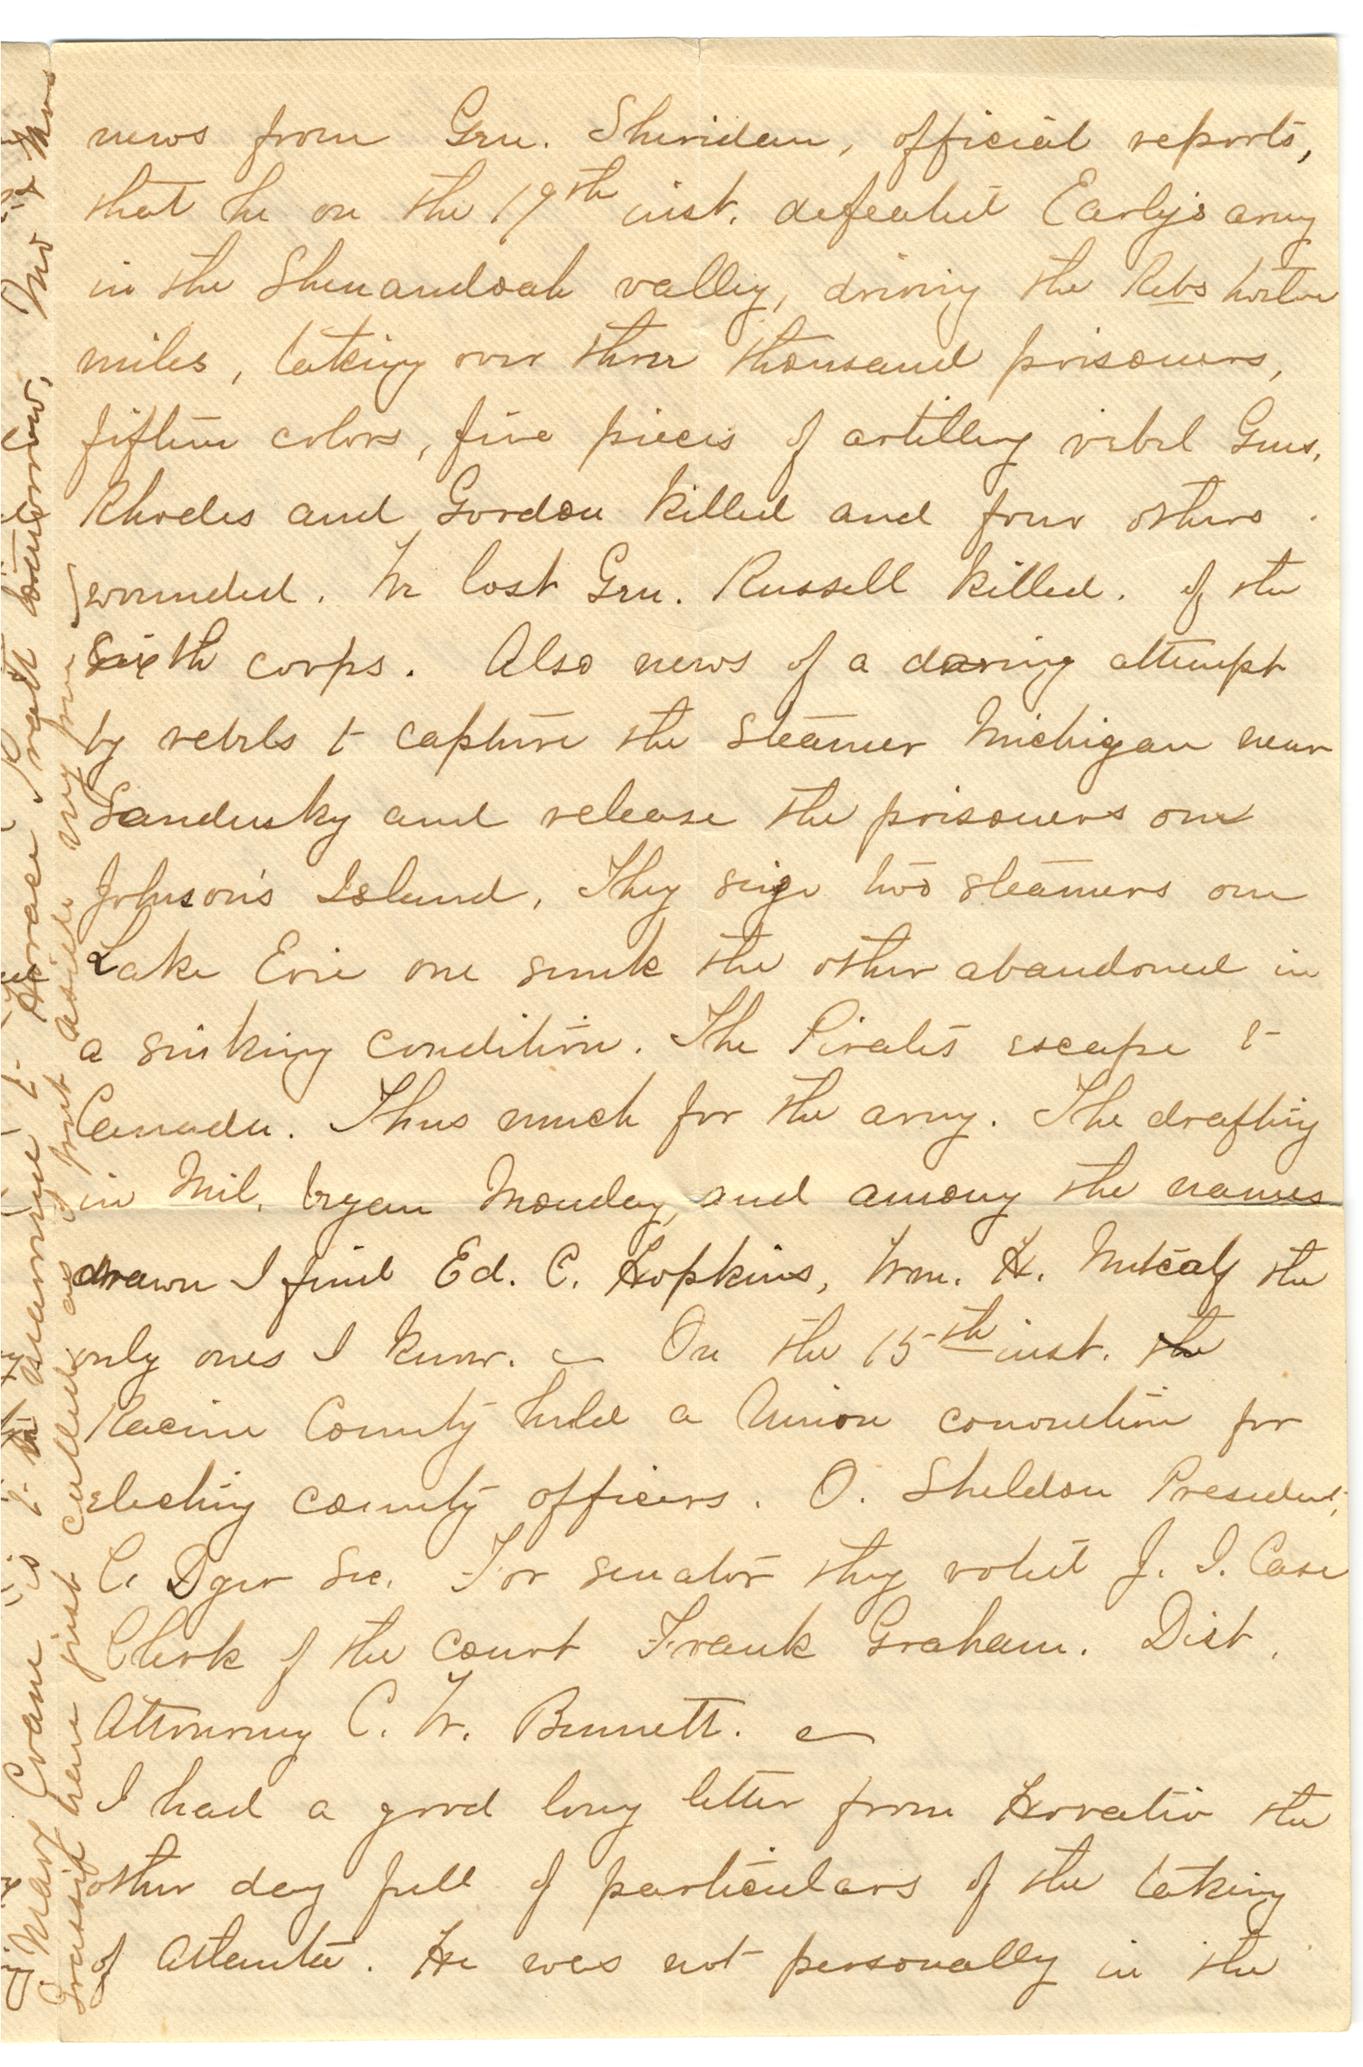 news from Gen. Sheridan, official reports,
that he on the 19th inst. defeated Early's army
in the Shenandoah valley, driving the Rebs twelve
miles, taking over three thousand prisoners,
fifteen colors, five pieces of artillery rebel Gens.
Rhodes and Gordon killed and four others
wounded. We lost Gen. Russell killed. of the
Sixth corps. Also news of a daring attempt
by rebels to capture the steamer Michigan near
Sandusky and release the prisoners on
Johnson's Island. They seige two steamers on
Lake Erie one sunk the other abandoned in
a sinking condition. The Pirates escape to
Canada. Thus much for the army. The drafting
in Mil. began Monday, and among the names
drawn I find Ed. C. Hopkins, Wm. H. Metcalf the
only ones I know. On the 15th inst. the
Racine County held a Union convention for
electing county officers. O. Sheldon President,
C. Dyer Sec. For senator they voted J. I. Case
Clerk of the court Frank Graham. Dist.
Attorney C. W. Bennett.
I had a good long letter from Horatio the
other day full of particulars of the taking
of Atlanta. He was not personally in the
Mary Crane is to be married to Horace Pratt tomorrow, Mr & Mrs
have just called as I put aside my pen